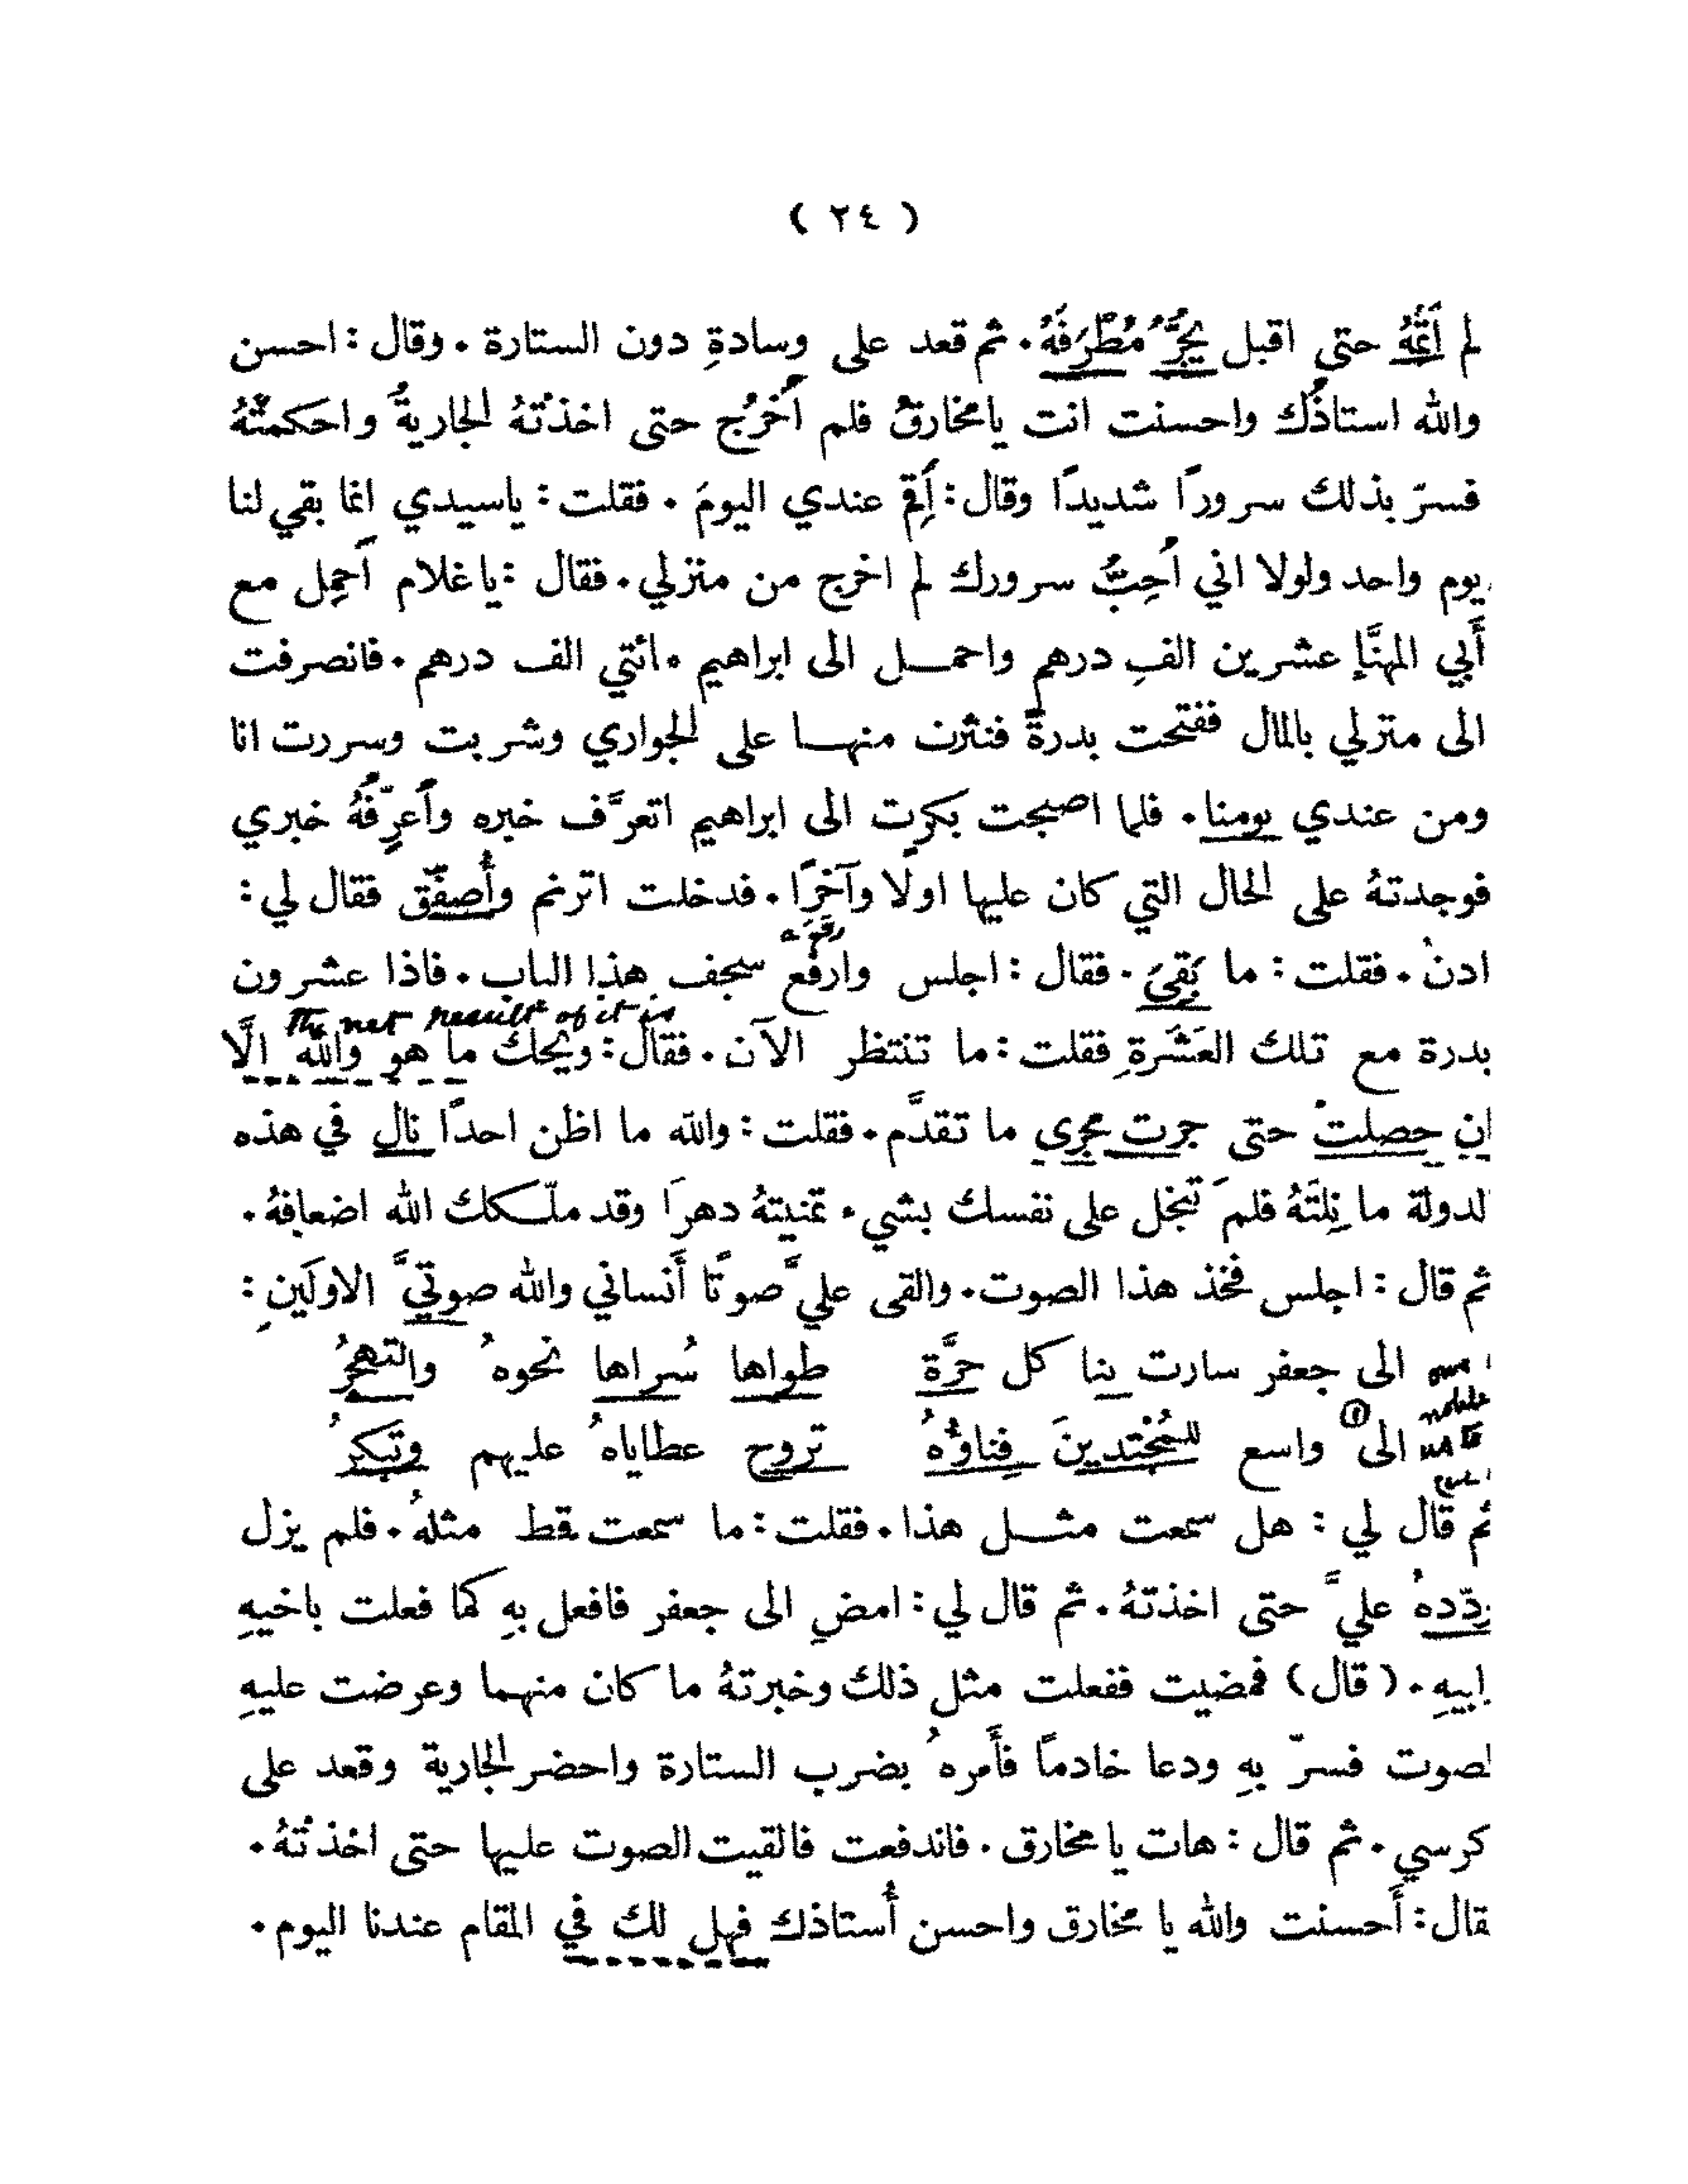 ( ٢٤ )
لم أَتَمَّهُ حتى اقبل يَجُرُّ مُطْرَفَهُ. ثم قعد على وسادةِ دون الستارة. وقال: احسن
والله استاذُك واحسنت انت يامخارقُ فلم أَخرُج حتى اخذتْهُ الجاريةُ واحكمتْهُ
فسرّ بذلك سرورًا شديدًا وقال: أَقِم عندي اليومَ. فقلت: ياسيدي انما بقي لنا
يوم واحد ولولا اني أُحِبُّ سرورك لم اخرج من منزلي. فقال: ياغلام احمِل مع
أَبي المهنَّإ عشرين الفِ درهم واحمل الى ابراهيم مائتي الف درهم. فانصرفت
الى منزلي بالمال ففتحت بدرةً فنثرت منها على الجواري وشربت وسررت انا
ومن عندي يومنا. فلما اصبحت بكرت الى ابراهيم اتعرَّف خبره وأُعرِّفُهُ خبري
فوجدتهُ على الحال التي كان عليها اولًا وآخرًا. فدخلت اترنم وأُصفّق فقال لي:
ادنُ. فقلت: ما بَقِيَ. فقال: اجلس وارفع سجف هذا الباب. فاذا عشرون
The net result of it is
بدرة مع تلك العَشَرةِ فقلت: ما تنتظر الآن. فقال: ويحك ما هو والله الَّا
ان حصلتْ حتى جرت مجرى ما تقدَّم. فقلت: والله ما اظن احدًا نال في هذه
الدولة ما نِلتَهُ فلمَ تبخل على نفسك بشيء تمنيتهُ دهرًا وقد ملّكك الله اضعافهُ.
ثم قال: اجلس فخذ هذا الصوت. والقى عليَّ صوتًا أَنساني والله صوتيَّ الاولَينِ:
الى جعفر سارت بنا كل حرَّة طواها سُراها نحوهُ والتهجُّرُ
noble
الى واسع للمُجْتدينَ فِناؤُهُ تروح عطاياهُ عليهم وتَبكرُ
ثم قال لي: هل سمعت مثل هذا. فقلت: ما سمعت قط مثلهُ. فلم يزل
يردّدهُ عليَّ حتى اخذتهُ. ثم قال لي: امضِ الى جعفر فافعل بهِ كما فعلت باخيهِ
وابيهِ. (قال) فمضيت ففعلت مثل ذلك وخبرتهُ ما كان منهما وعرضت عليهِ
الصوت فسرّ بهِ ودعا خادمًا فأَمرهُ بضرب الستارة واحضر الجارية وقعد على
كرسي. ثم قال: هات يا مخارق. فاندفعت فالقيت الصوت عليها حتى اخذتْهُ.
فقال: أَحسنت والله يا مخارق واحسن أُستاذك فهل لك في المقام عندنا اليوم.